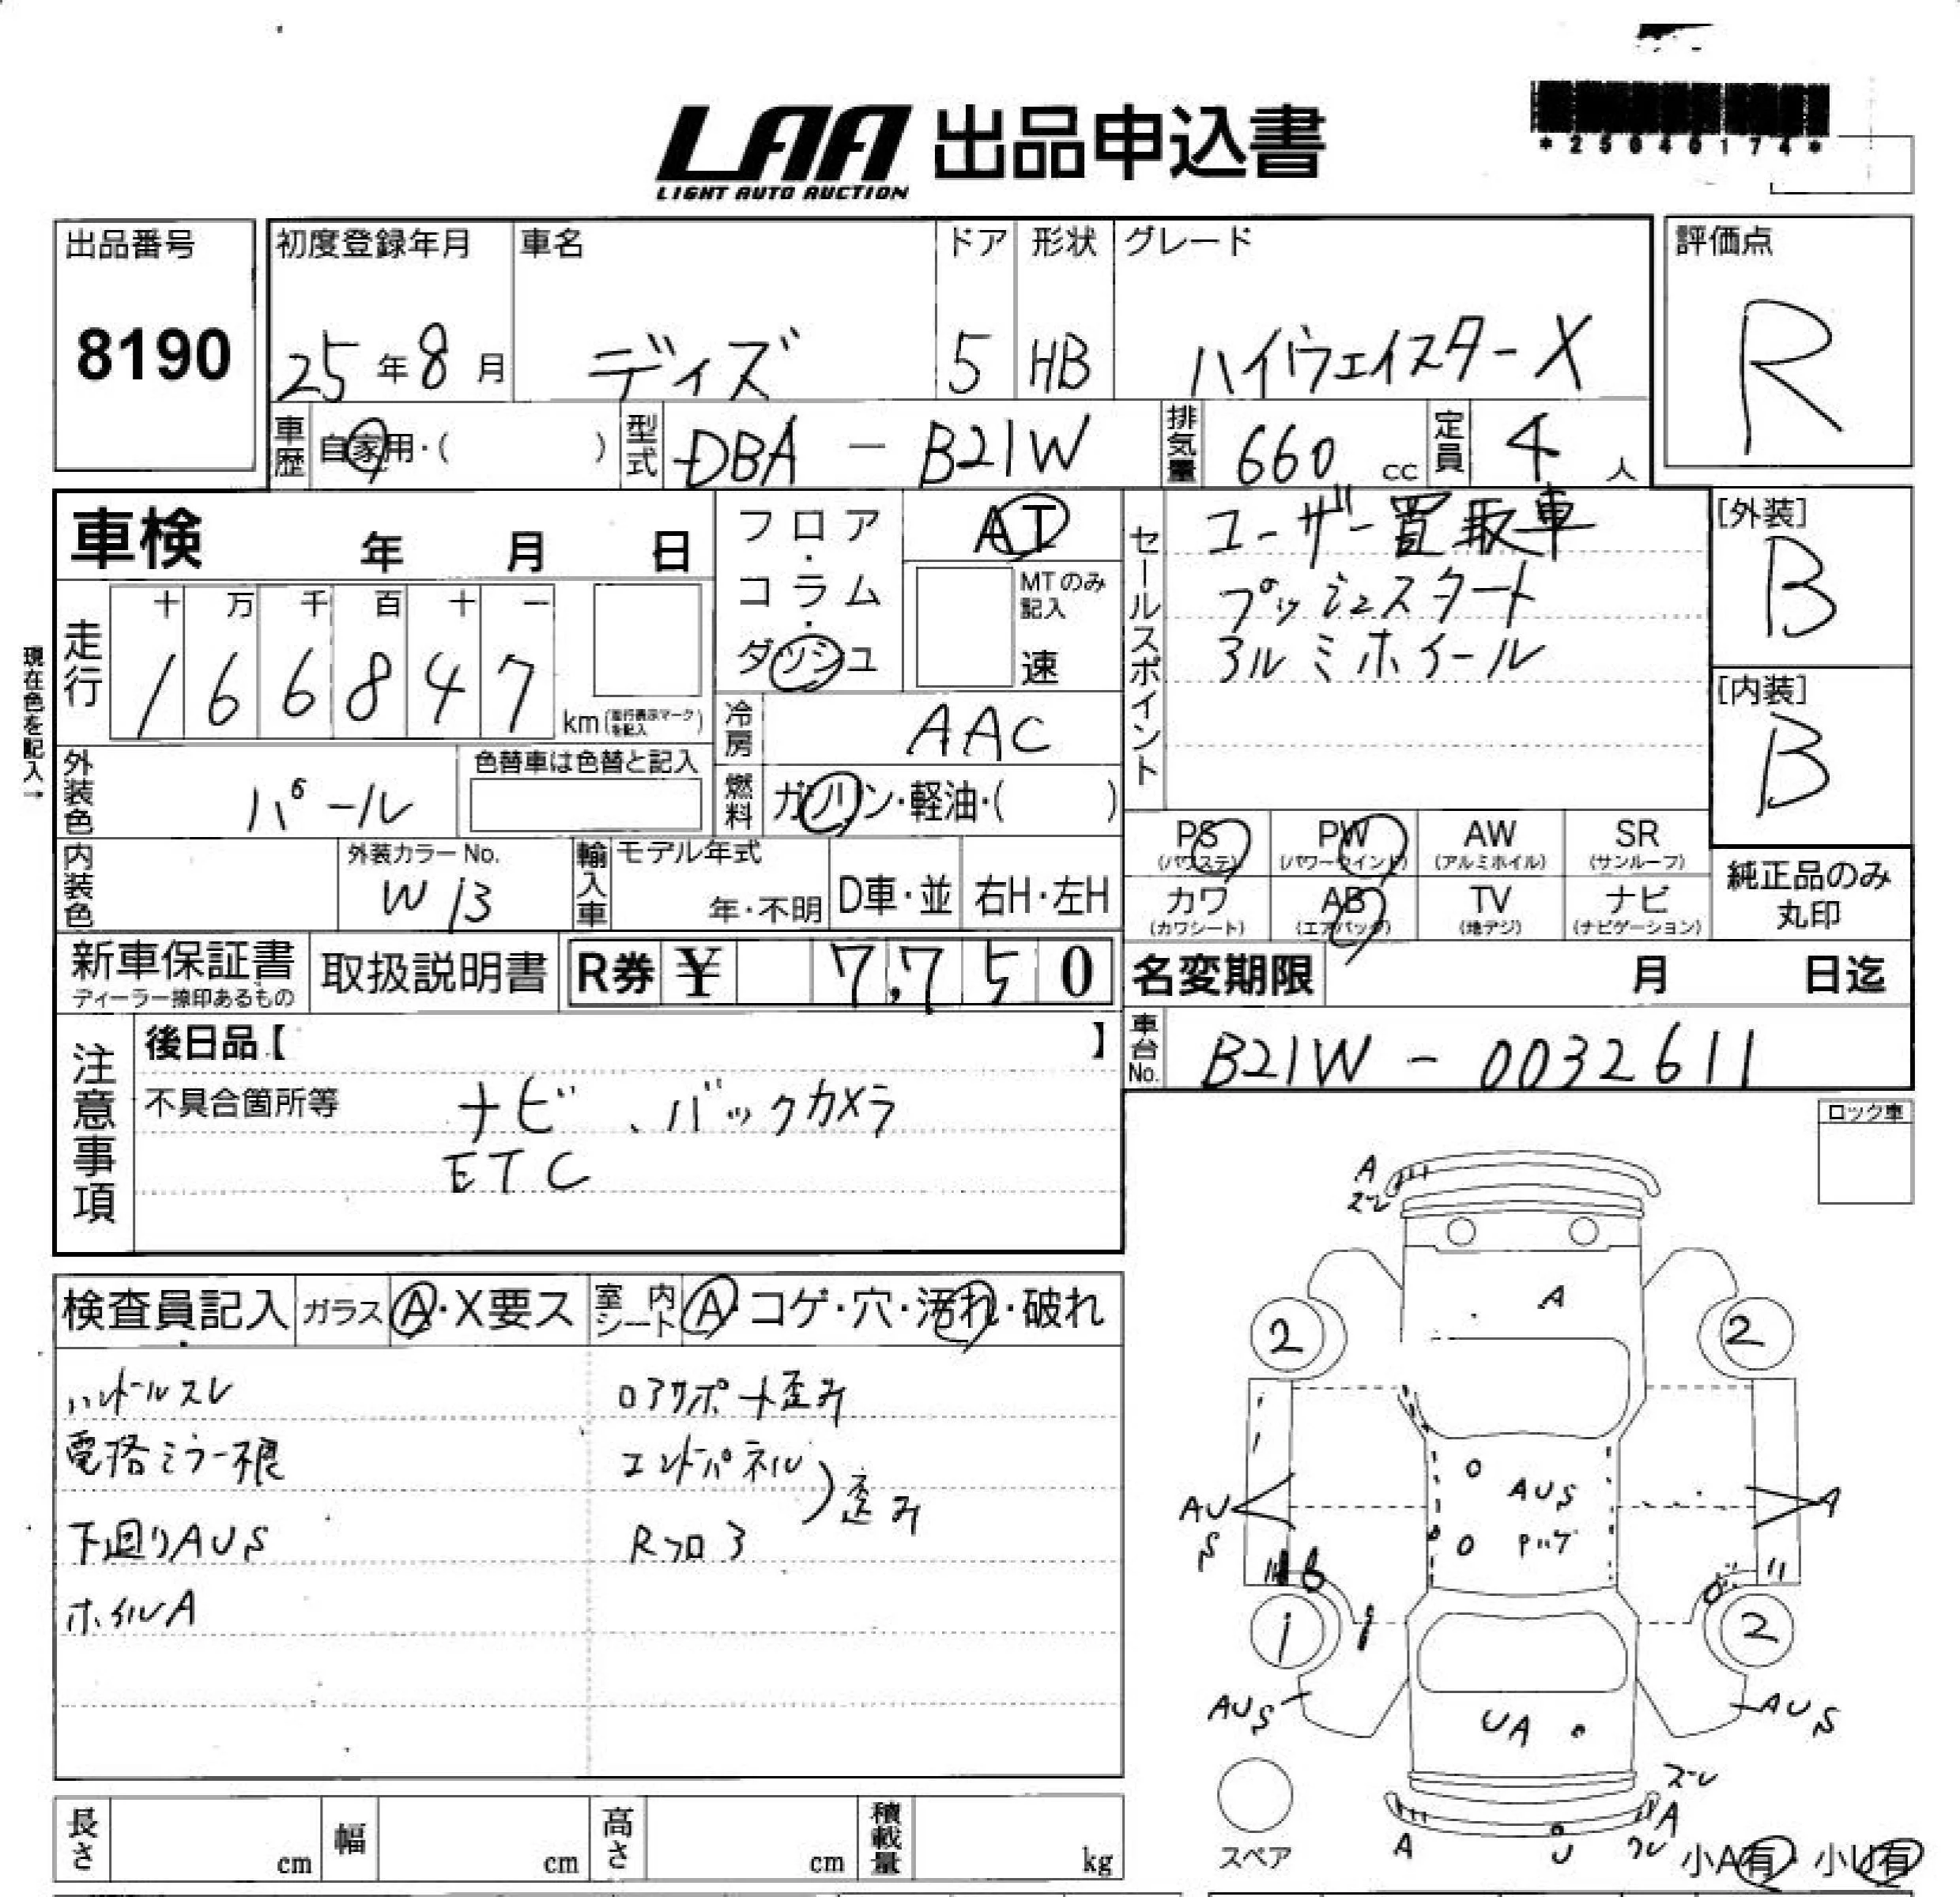 LAA 出品申込書
LIGHT AUTO AUCTION
*25040174*
出品番号
8190
初度登録年月
25年8月
車名
ディズ
ドア
5
形状
HB
グレード
ハイウェイスターX
評価点
R
車歴
自家用・( )
型式
DBA - B21W
排気量
660 cc
定員
4 人
車検 年 月 日
フロア・コラム・ダッシュ
AT
MTのみ記入
速
セールスポイント
ユーザー買取車
プッシュスタート
アルミホイール
[外装]
B
[内装]
B
現在色を記入→
走行
十 万 千 百 十 一
1 6 6 8 4 7
km (走行表示マークを記入)
冷房
AAC
外装色
パール
色替車は色替と記入
燃料
ガソリン・軽油・( )
内装色
外装カラーNo.
W13
輸入車
モデル年式
年・不明
D車・並
右H・左H
PS (パワステ)
PW (パワーウインド)
AW (アルミホイル)
SR (サンルーフ)
カワ (カワシート)
AB (エアバッグ)
TV (地デジ)
ナビ (ナビゲーション)
純正品のみ丸印
新車保証書
ディーラー捺印あるもの
取扱説明書
R券 ¥ 7,750
名変期限 月 日迄
注意事項
後日品【 】
不具合箇所等
ナビ、バックカメラ
ETC
車台No.
B21W - 0032611
ロック車
検査員記入
ガラス A・X要ス
室内シート A・コゲ・穴・汚れ・破れ
ハンドルスレ
電格ミラー不良
下廻りAUS
ホイルA
ロアサポート歪み
エンドパネル
Rフロア
歪み
A
ズレ
A
2
2
AUS
AUS
Pハゲ
A
B
1
2
AUS
AUS
UA
ズレ
A
A
U
ワレ
スペア
小A有・小U有
長さ cm
幅 cm
高さ cm
積載量 kg